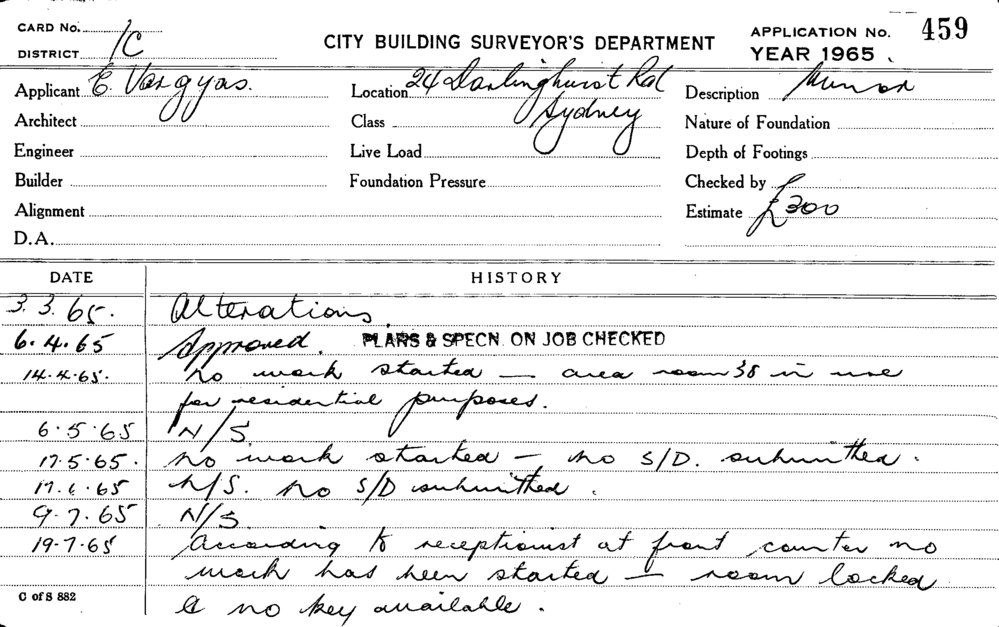 CARD No. 1C
DISTRICT
CITY BUILDING SURVEYOR'S DEPARTMENT
APPLICATION No. 459
YEAR 1965.
Applicant E. Vargyas.
Location 24 Darlinghurst Rd
Sydney
Description Minor
Architect
Class
Nature of Foundation
Engineer
Live Load
Depth of Footings
Builder
Foundation Pressure
Checked by
Alignment
Estimate £300
D.A.
DATE HISTORY
3.3.65. Alterations.
6.4.65 Approved. PLANS & SPECN. ON JOB CHECKED
14.4.65. No work started — area room 38 in use
for residential purposes.
6.5.65 N/S.
17.5.65. No work started — no S/D. submitted.
17.6.65 N/S. No S/D submitted.
9.7.65 N/S
19.7.65 According to receptionist at front counter no
work has been started — room locked
& no key available.
C of S 882